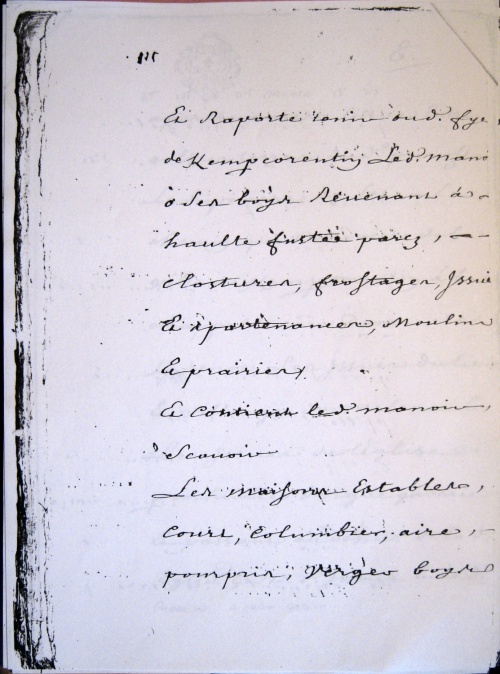 Et Raporte tenir dud. fye
de Kempcorentin Led. mano
o ses boys Revenant à
haulte fustée parcq,
clostures, frostages, Issue
Et apartenances, Moulins
Et prairies,
Et Contient led. manoir,
Scavoir
Les maisons Estables,
Court, Columbier, aire,
pourpris, vergeo boys